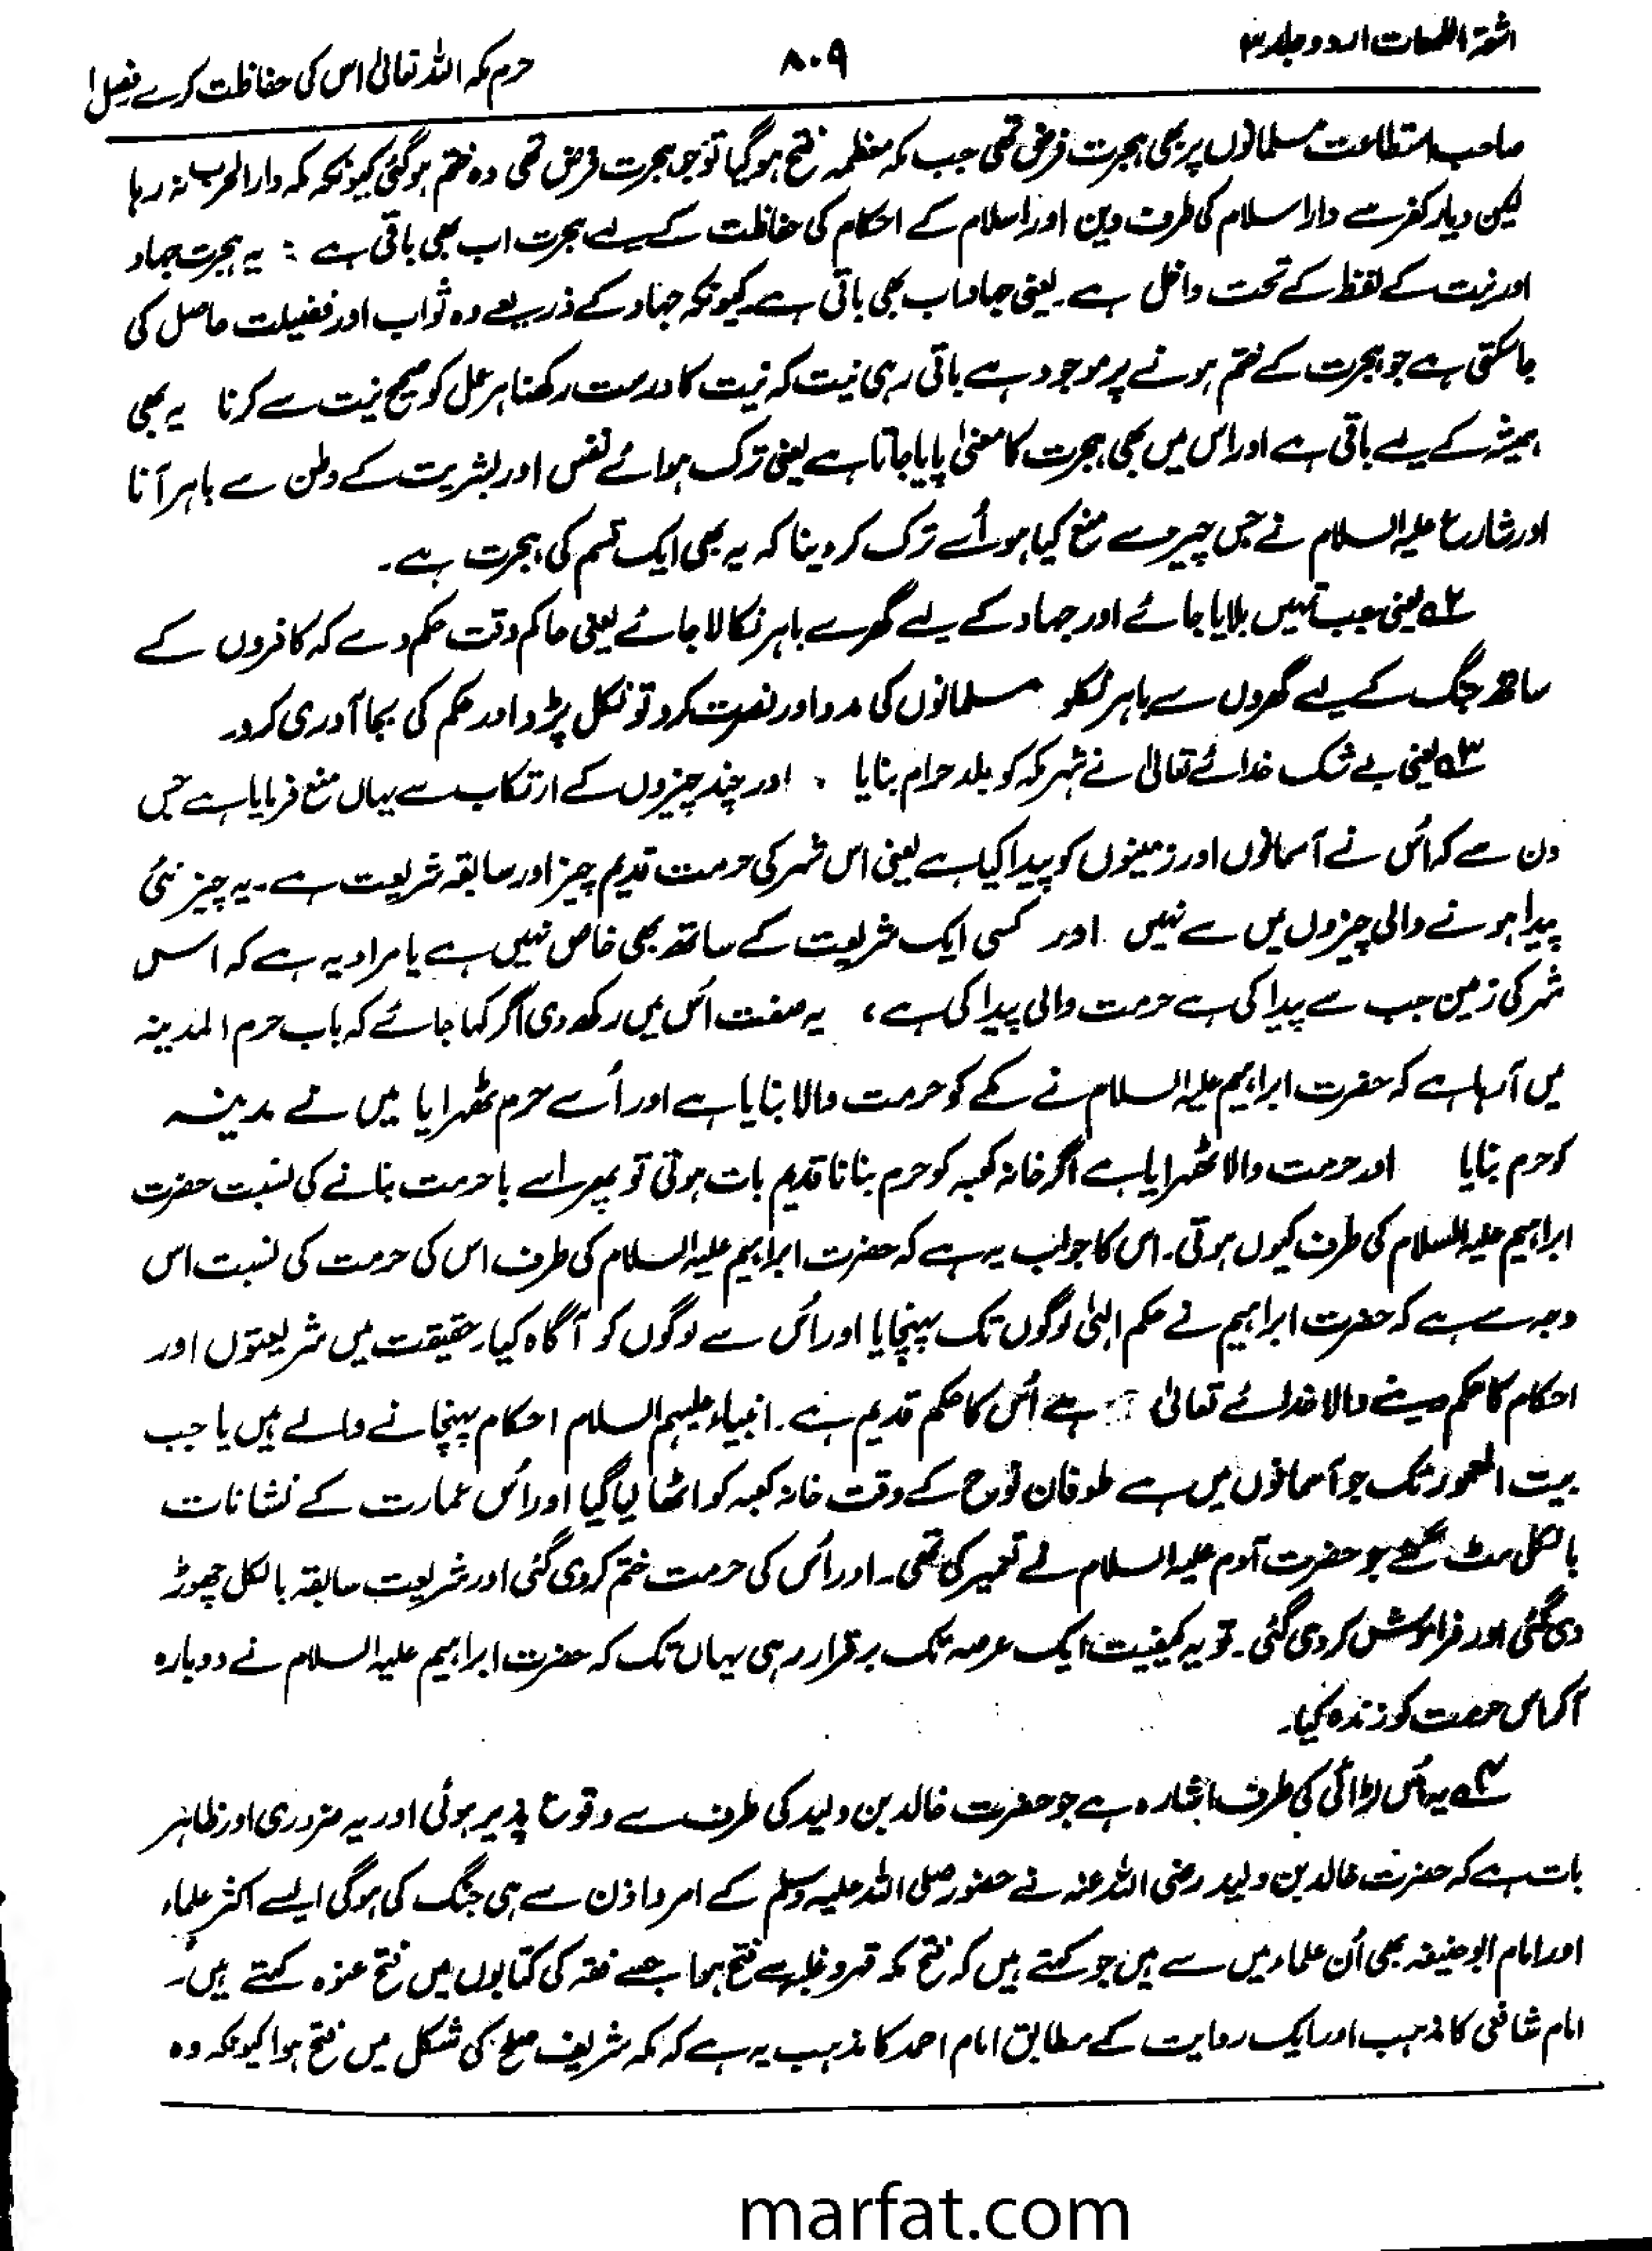 اشعۃ اللمعات اردو جلد ۳
۸۰۹
حرم مکہ اللہ تعالیٰ اس کی حفاظت کرے فصل ۱
صاحب استطاعت مسلمانوں پر بھی ہجرت فرض تھی جب مکہ معظمہ فتح ہو گیا تو جو ہجرت فرض تھی وہ ختم ہو گئی کیونکہ مکہ دار الحرب نہ رہا
لیکن دیار کفر سے دار اسلام کی طرف دین اور اسلام کے احکام کی حفاظت کے لیے ہجرت اب بھی باقی ہے : یہ ہجرت جہاد
اور نیت کے لفظ کے تحت داخل ہے۔ یعنی جہاد اب بھی باقی ہے کیونکہ جہاد کے ذریعے وہ ثواب اور فضیلت حاصل کی
جا سکتی ہے جو ہجرت کے ختم ہونے پر موجود ہے باقی رہی نیت کہ نیت کا درست رکھنا ہر عمل کو صحیح نیت سے کرنا یہ بھی
ہمیشہ کے لیے باقی ہے اور اس میں بھی ہجرت کا معنیٰ پایا جاتا ہے یعنی ترک ہوائے نفس اور بشریت کے وطن سے باہر آنا
اور شارع علیہ السلام نے جس چیز سے منع کیا ہو اُسے ترک کر دینا کہ یہ بھی ایک قسم کی ہجرت ہے۔
۲ یعنی جب تمہیں بلایا جائے اور جہاد کے لیے گھر سے باہر نکالا جائے یعنی حاکم وقت حکم دے کہ کافروں کے
ساتھ جنگ کے لیے گھروں سے باہر نکلو مسلمانوں کی مدد اور نصرت کرو تو نکل پڑو اور حکم کی بجا آوری کرو۔
۳ یعنی بے شک خدائے تعالیٰ نے شہر مکہ کو بلد حرام بنایا ، اور چند چیزوں کے ارتکاب سے یہاں منع فرمایا ہے جس
دن سے کہ اُس نے آسمانوں اور زمینوں کو پیدا کیا ہے یعنی اس شہر کی حرمت قدیم چیز اور سابقہ شریعت ہے۔ یہ چیز نئی
پیدا ہونے والی چیزوں میں سے نہیں اور کسی ایک شریعت کے ساتھ بھی خاص نہیں ہے یا مراد یہ ہے کہ اس
شہر کی زمین جب سے پیدا کی ہے حرمت والی پیدا کی ہے، یہ صفت اُس میں رکھ دی اگر کہا جائے کہ باب حرم المدینہ
میں آرہا ہے کہ حضرت ابراہیم علیہ السلام نے مکے کو حرمت والا بنایا ہے اور اُسے حرم ٹھہرایا میں نے مدینہ
کو حرم بنایا اور حرمت والا ٹھہرایا ہے اگر خانہ کعبہ کو حرم بنانا قدیم بات ہوتی تو پھر اسے با حرمت بنانے کی نسبت حضرت
ابراہیم علیہ السلام کی طرف کیوں ہوتی۔ اس کا جواب یہ ہے کہ حضرت ابراہیم علیہ السلام کی طرف اس کی حرمت کی نسبت اس
وجہ سے ہے کہ حضرت ابراہیم نے حکم الہٰی لوگوں تک پہنچایا اور اُس سے لوگوں کو آگاہ کیا۔ حقیقت میں شریعتوں اور
احکام کا حکم دینے والا خدائے تعالیٰ ہے اُس کا حکم قدیم ہے۔ انبیاء علیہم السلام احکام پہنچانے والے ہیں یا جب
بیت المعمور تک جو آسمانوں میں ہے طوفان نوح کے وقت خانہ کعبہ کو اٹھا لیا گیا اور اُس عمارت کے نشانات
بالکل مٹ گئے جو حضرت آدم علیہ السلام نے تعمیر کی تھی۔ اور اُس کی حرمت ختم کر دی گئی اور شریعت سابقہ بالکل چھوڑ
دی گئی اور فراموش کر دی گئی۔ تو یہ کیفیت ایک عرصہ تک برقرار رہی یہاں تک کہ حضرت ابراہیم علیہ السلام نے دوبارہ
آکر اس حرمت کو زندہ کیا۔
۴ یہ اُس لڑائی کی طرف اشارہ ہے جو حضرت خالد بن ولید کی طرف سے وقوع پذیر ہوئی اور یہ ضروری اور ظاہر
بات ہے کہ حضرت خالد بن ولید رضی اللہ عنہ نے حضور صلی اللہ علیہ وسلم کے امر و اذن سے ہی جنگ کی ہو گی ایسے اکثر علماء
اور امام ابو حنیفہ بھی اُن علماء میں سے ہیں جو کہتے ہیں کہ فتح مکہ قہر و غلبہ سے فتح ہوا جسے فقہ کی کتابوں میں فتح عنوہ کہتے ہیں۔
امام شافعی کا مذہب اور ایک روایت کے مطابق امام احمد کا مذہب یہ ہے کہ مکہ شریف صلح کی شکل میں فتح ہوا کیونکہ وہ
marfat.com